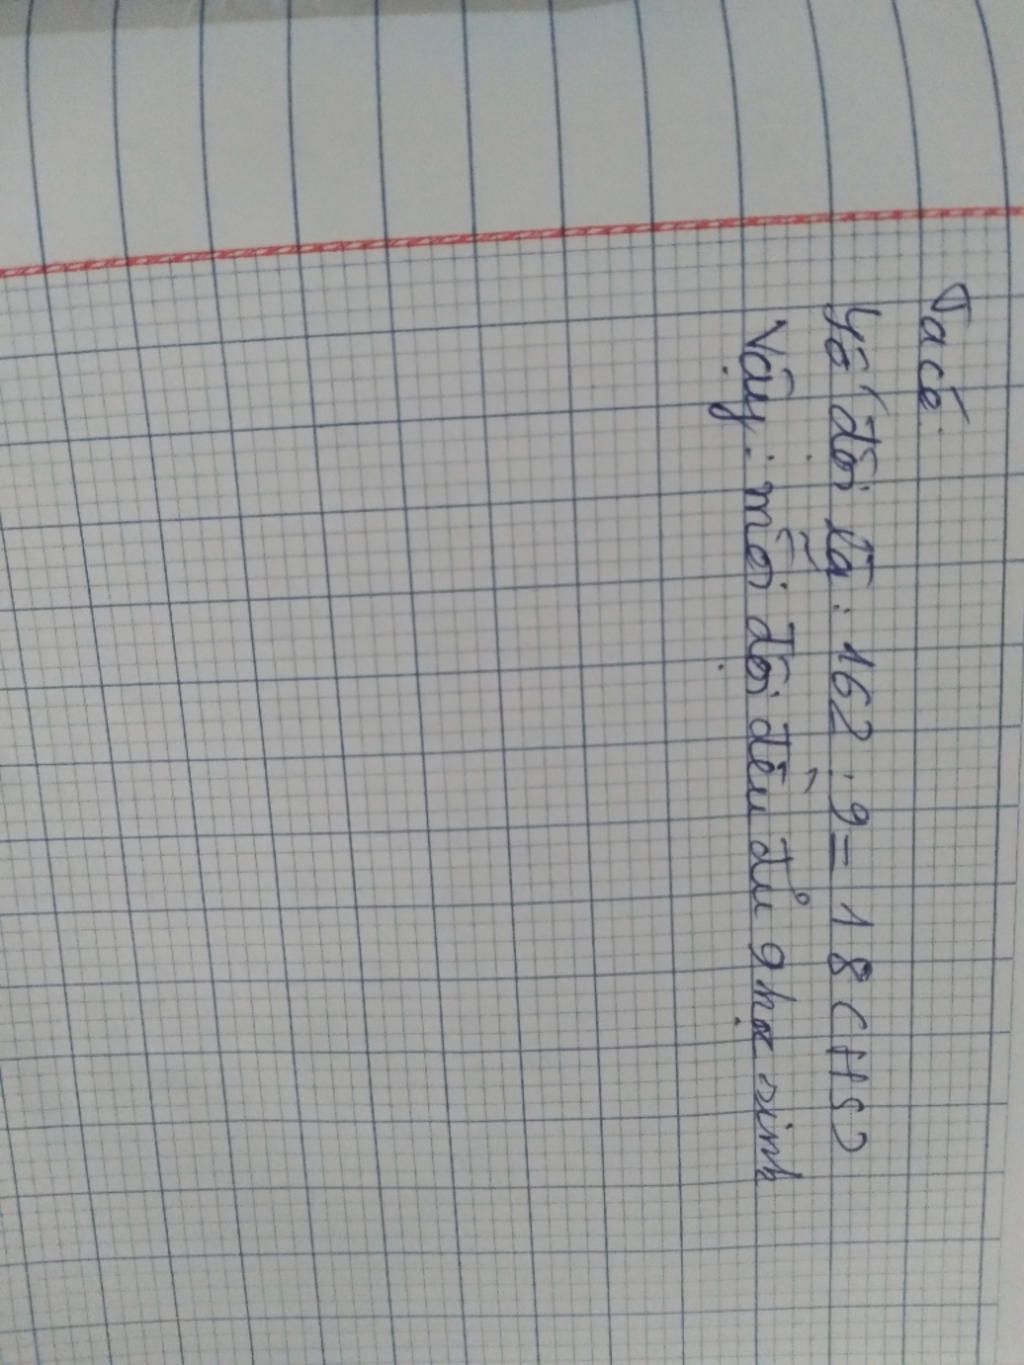 Ta có:
Số đội là: 162 : 9 = 18 (HS)
Vậy: mỗi đội đều đủ 9 học sinh